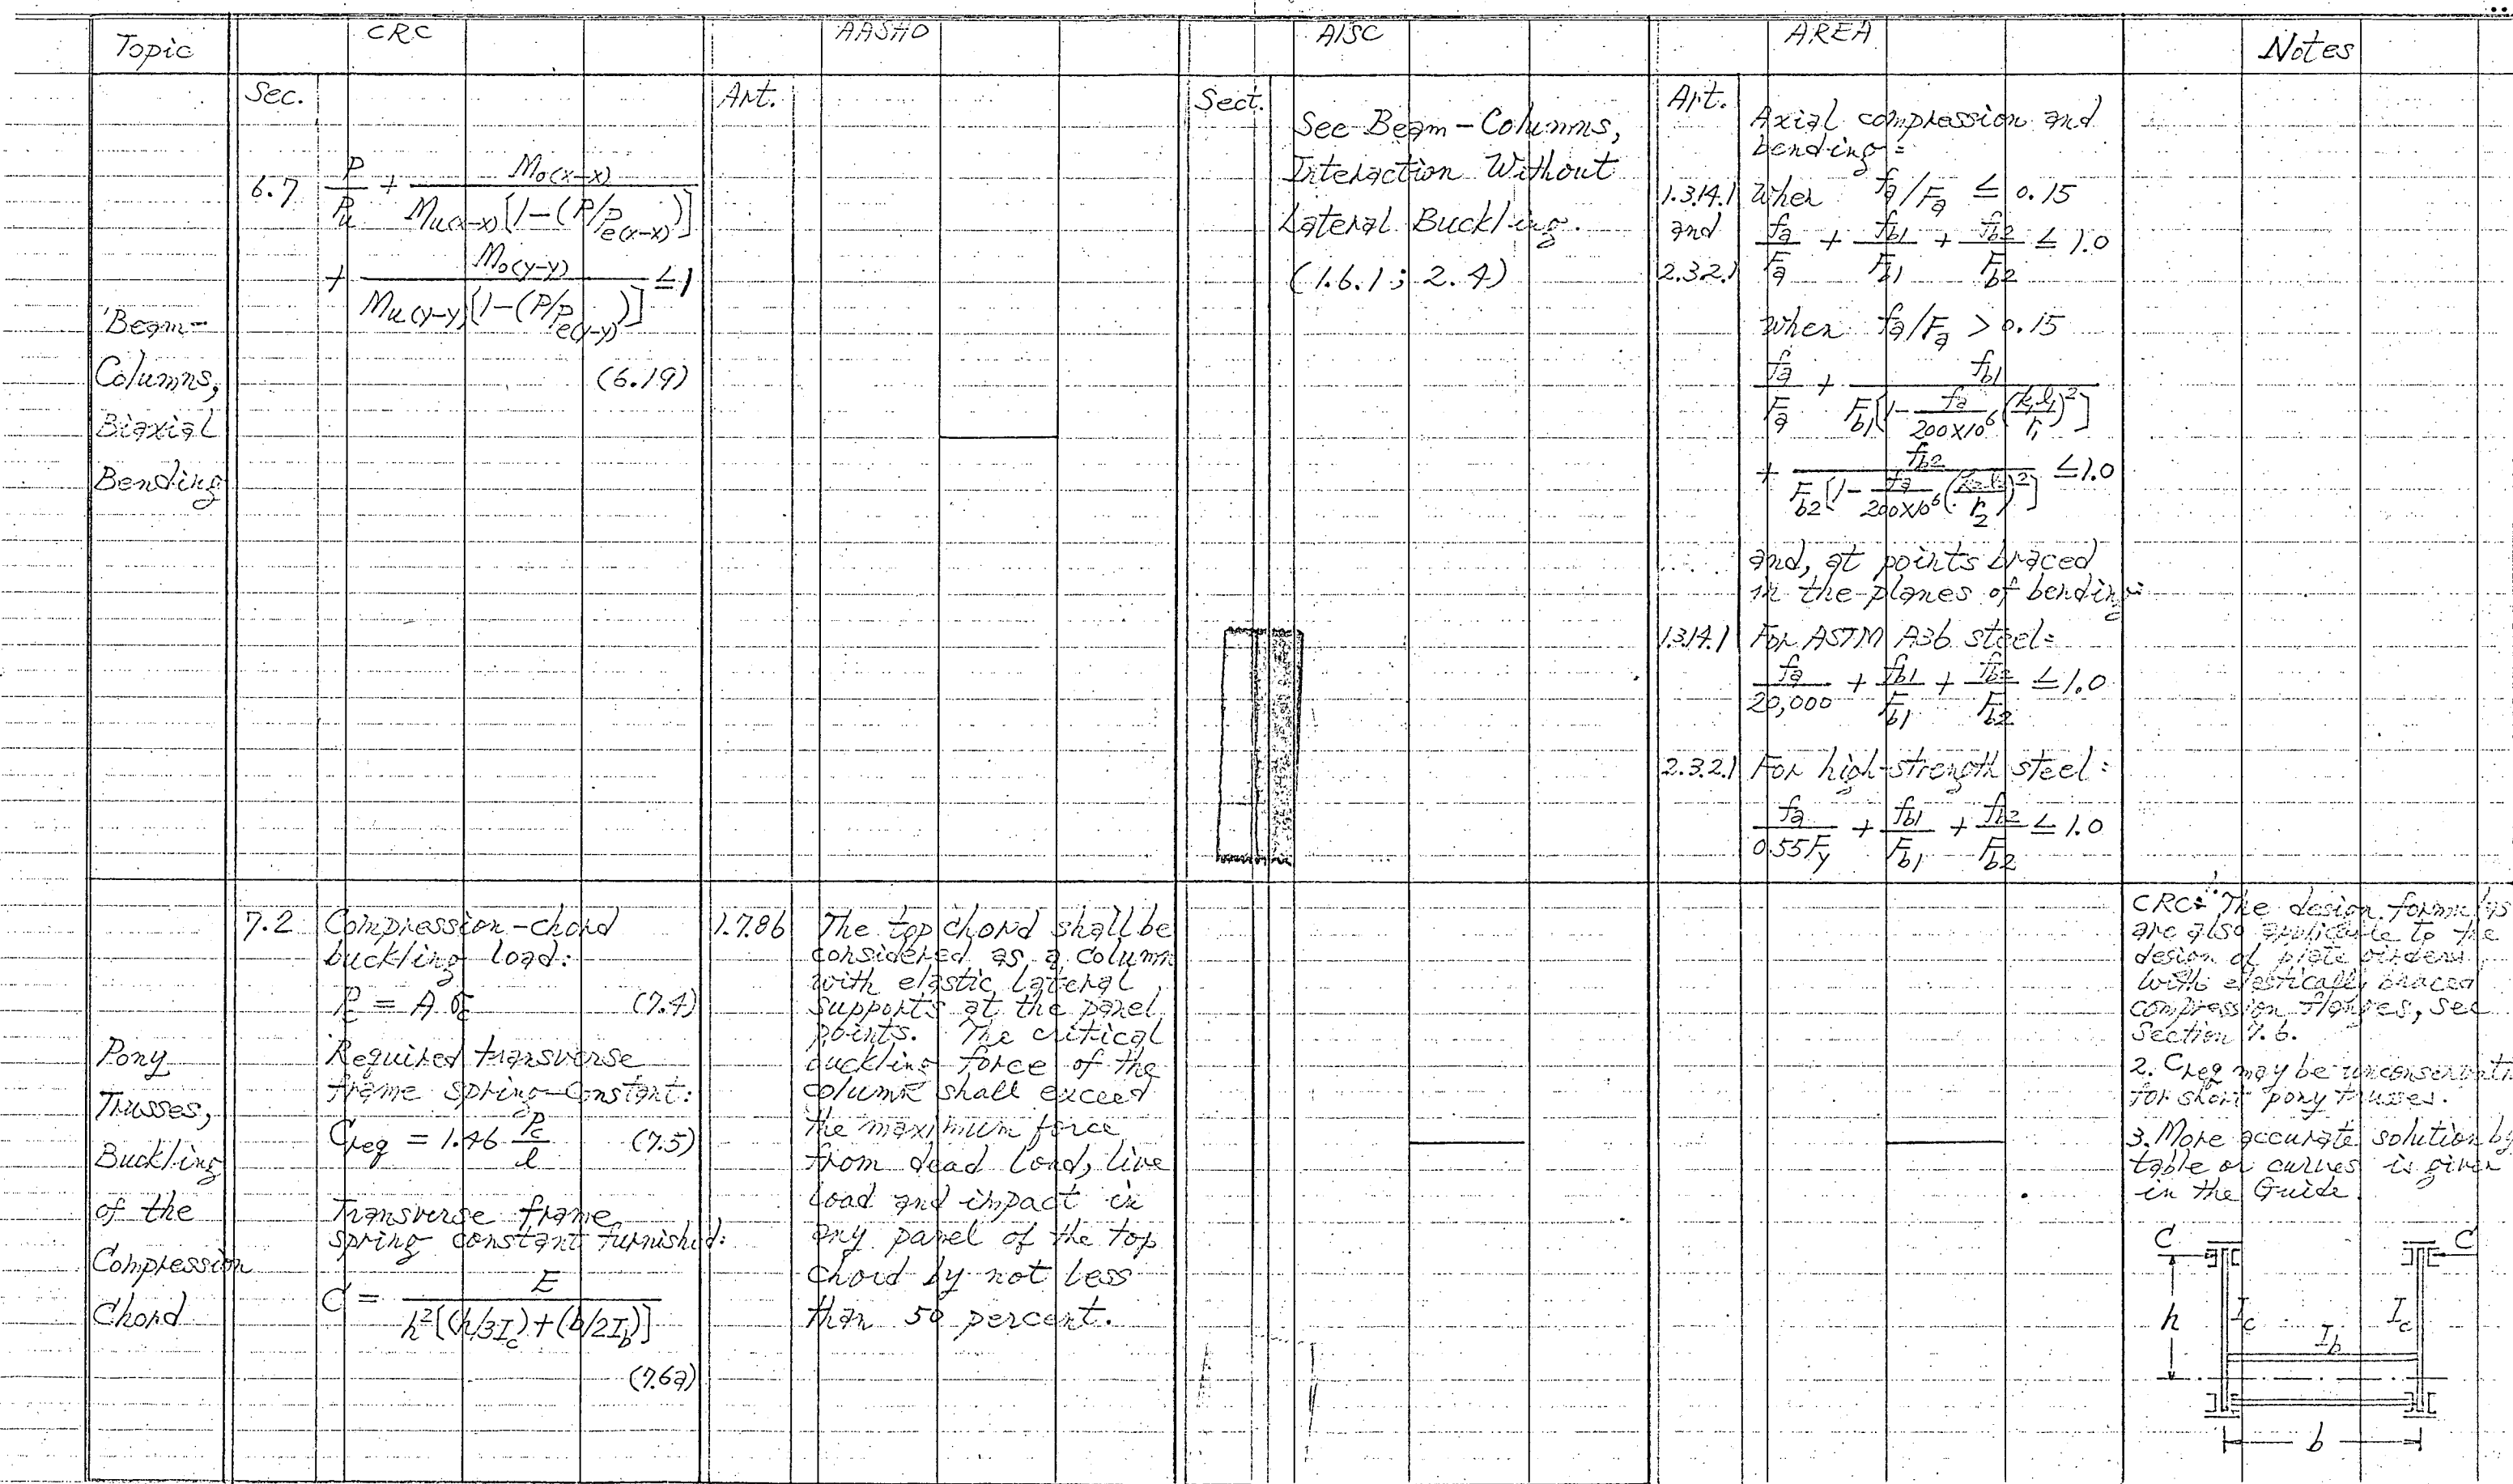 Topic
CRC
AASHO
AISC
AREA
Notes
Sec.
Art.
Sect.
Art.
Beam-
Columns,
Biaxial
Bending
6.7
P/P_u + M_o(x-x) / M_u(x-x)[1-(P/P_e(x-x))]
+ M_o(y-y) / M_u(y-y)[1-(P/P_e(y-y))] ≤ 1
(6.19)
See Beam-Columns,
Interaction Without
Lateral Buckling.
(1.6.1; 2.4)
Axial compression and
bending:
1.3.14.1 When f_a/F_a ≤ 0.15
and f_a/F_a + f_b1/F_b1 + f_b2/F_b2 ≤ 1.0
2.3.2.1
When f_a/F_a > 0.15
f_a/F_a + f_b1 / F_b1[1 - f_a/200x10^6 (k_1l_1/r_1)^2]
+ f_b2 / F_b2[1 - f_a/200x10^6 (k_2l_2/r_2)^2] ≤ 1.0
and, at points braced
in the planes of bending:
1.3.14.1 For ASTM A36 steel:
f_a/20,000 + f_b1/F_b1 + f_b2/F_b2 ≤ 1.0
2.3.2.1 For high-strength steel:
f_a/0.55F_y + f_b1/F_b1 + f_b2/F_b2 ≤ 1.0
Pony
Trusses,
Buckling
of the
Compression
Chord
7.2 Compression-chord
buckling load:
P_c = A σ_c (7.4)
Required transverse
frame spring-constant:
C_req = 1.46 P_c/l (7.5)
Transverse frame
spring constant furnished:
C = E / h^2[(h/3I_c)+(b/2I_b)]
(7.6a)
1.7.86 The top chord shall be
considered as a column
with elastic lateral
supports at the panel
points. The critical
buckling force of the
column shall exceed
the maximum force
from dead load, live
load and impact in
any panel of the top
chord by not less
than 50 percent.
CRC: The design formulas
are also applicable to the
design of plate girders
with elastically braced
compression flanges, see
Section 7.6.
2. C_req may be
for short pony trusses.
3. More accurate solution by
table or curves is given
in the Guide.
C
C
h
I_c
I_c
I_b
b